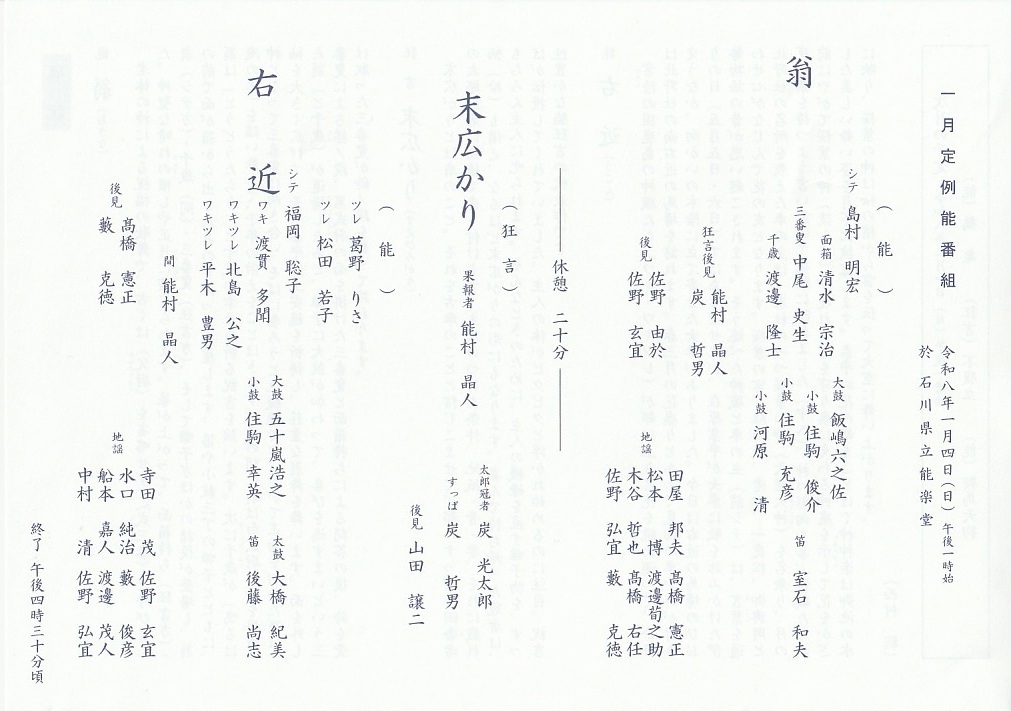 一月定例能番組
令和八年一月四日（日）午後一時始
於 石川県立能楽堂
（能）
翁
シテ 島村 明宏
面箱 清水 宗治
三番叟 中尾 史生
千歳 渡邊 隆士
大鼓 飯嶋六之佐
小鼓 住駒 俊介
小鼓 住駒 充彦
小鼓 河原 清
笛 室石 和夫
狂言後見 能村 晶人
炭 哲男
後見 佐野 由於
佐野 玄宜
地謡
田屋 邦夫 髙橋 憲正
松本 博 渡邊荀之助
木谷 哲也 髙橋 右任
佐野 弘宜 藪 克徳
休憩 二十分
（狂言）
末広かり
果報者 能村 晶人
太郎冠者 炭 光太郎
すっぱ 炭 哲男
後見 山田 譲二
（能）
右近
ツレ 葛野 りさ
ツレ 松田 若子
シテ 福岡 聡子
ワキ 渡貫 多聞
ワキツレ 北島 公之
ワキツレ 平木 豊男
間 能村 晶人
大鼓 五十嵐浩之
小鼓 住駒 幸英
太鼓 大橋 紀美
笛 後藤 尚志
後見 髙橋 憲正
藪 克徳
地謡
寺田 茂 佐野 玄宜
水口 純治 藪 俊彦
船本 嘉人 渡邊 茂人
中村 清 佐野 弘宜
終了 午後四時三十分頃